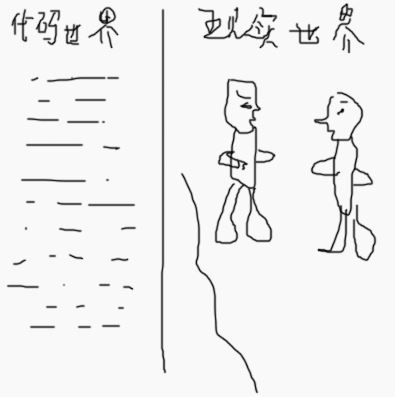 代码世界
现实世界